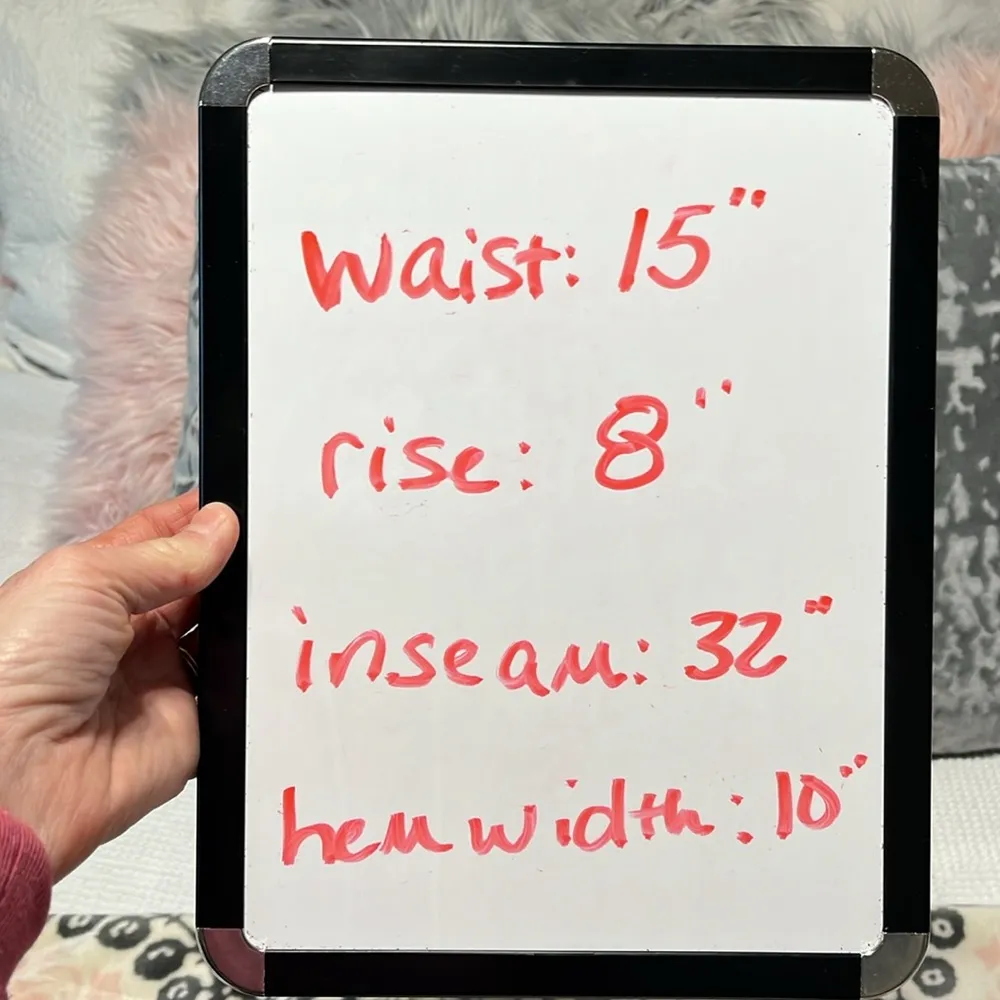 Waist: 15"
rise: 8"
inseam: 32"
hem width: 10"